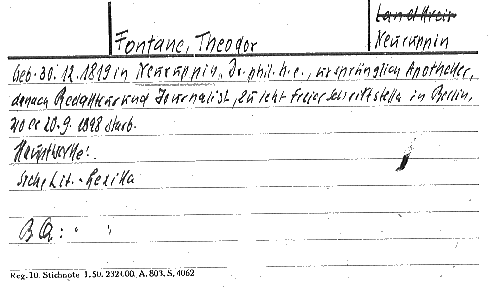 Landkreis
Fontane, Theodor
Neuruppin
Geb. 30.12.1819 in Neuruppin, Dr. phil. h.c., ursprünglich Apotheker,
danach Redakteur und Journalist, zuletzt freier Schriftsteller in Berlin,
wo er 20.9.1898 starb.
Hauptwerke:
Siehe Lit.-Lexika
BQ: " "
Reg. 10. Stichnote 1. 50. 232100. A. 803. S. 4062